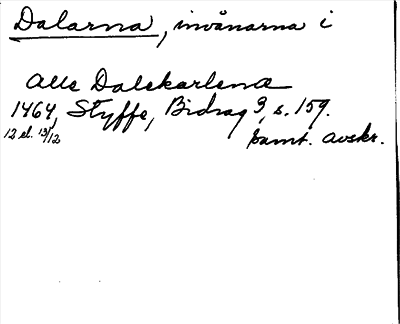 Dalarna, invånarna i
Alle Dalekarlena
1464, Styffe, Bidrag 3, s. 159.
12 el. 13/12 samt. avskr.